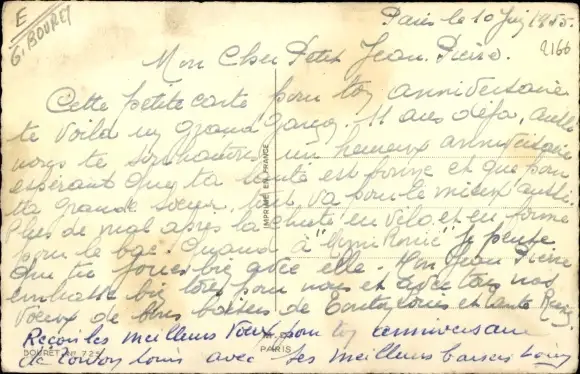 E
G. BOURET
Paris le 10 Juin 1955.
2166
Mon Cher Petit Jean-Pierre.
Cette petite carte pour ton anniversaire
te voilà un grand garçon. 11 ans déjà,
nous te souhaitons un heureux anniversaire
espérant que ta santé est bonne et que pour
ta grande soeur, tout va pour le mieux aussi.
Pas de mal après la chute en vélo et en forme
pour le bac. Quand à je pense
que tu joues bien avec elle. Mon Jean Pierre
embrasse bien tous pour nous et avec tous nos
voeux de bons baisers de et tante
Reçois les meilleurs voeux pour ton anniversaire
de louis avec ses meilleurs baisers
IMPRIMÉ EN FRANCE
BOURET N° 725
PARIS